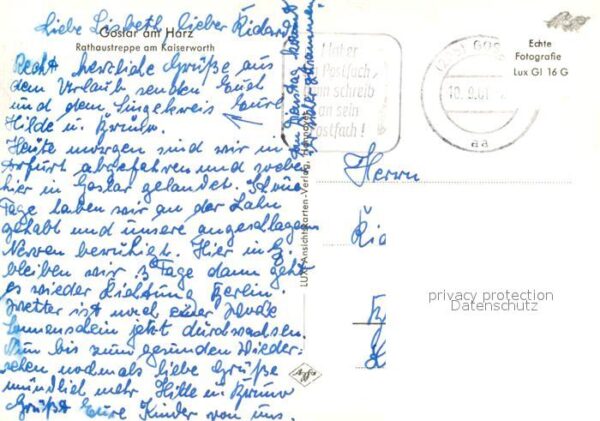 Liebe Lisbeth, lieber Richard
Goslar am Harz
Rathaustreppe am Kaiserworth
Recht herzliche Grüße aus
dem Urlaub senden Euch
und dem Singekreis Eure
Hilde u. Bruno
Heute morgen sind wir in
Erfurt abgefahren und soeben
hier in Goslar gelandet. Schöne
Tage haben wir an der Lahn
gehabt und unsere angeschlagenen
Nerven beruhigt. Hier in G.
bleiben wir 3 Tage dann geht
es wieder Richtung Berlin.
Wetter ist nach einer Woche
Sonnenschein jetzt durchwachsen.
Nun bis zum gesunden Wieder-
sehen nochmals liebe Grüße
mündlich mehr Hilde u. Bruno
Grüßt Eure Kinder von uns.
Dienstag
LUX-Ansichtskarten-Verlag,
Hat er
Postfach
dann schreib
an sein
Postfach!
(2
GOS
10.9.61
aa
Echte
Fotografie
Lux GI 16 G
Herrn
Agfa
privacy protection
Datenschutz